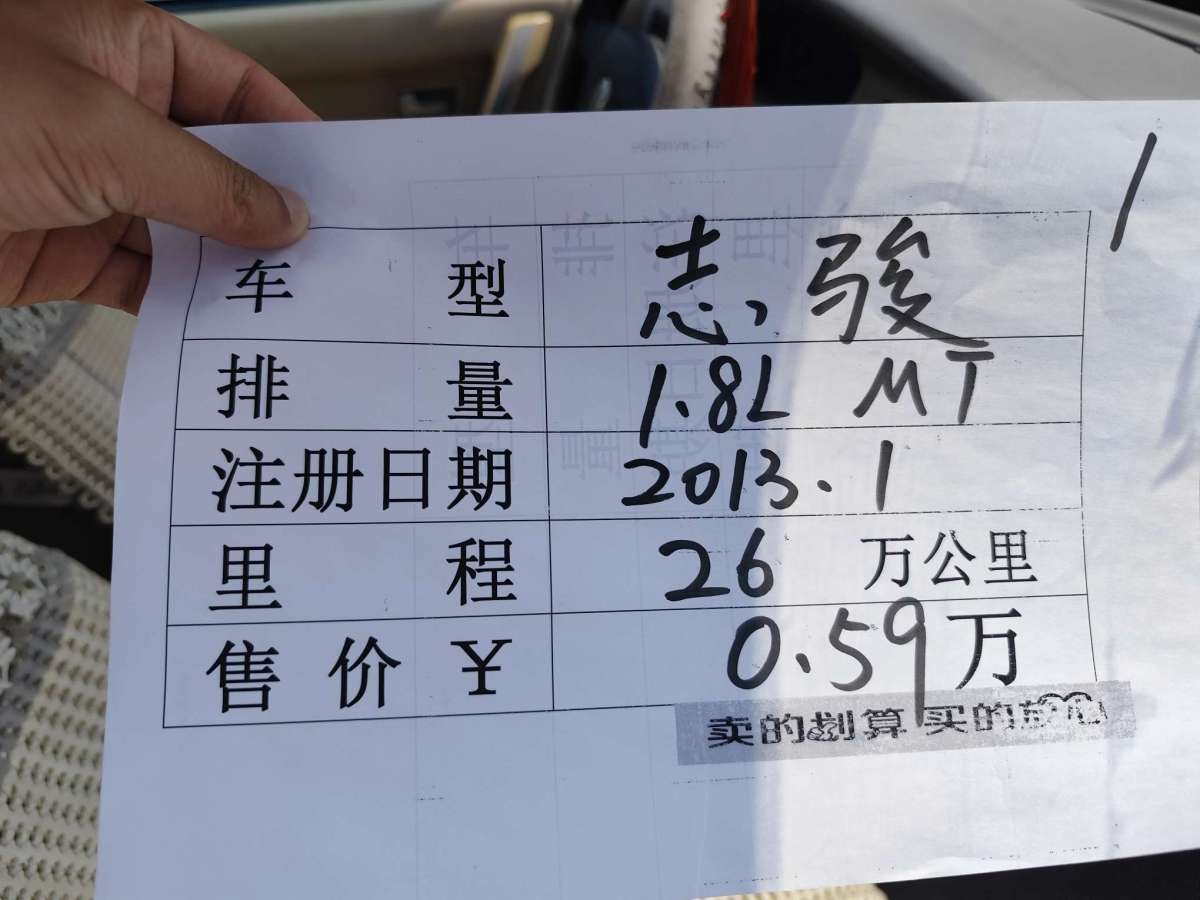 1
车型 志骏
排量 1.8L MT
注册日期 2013.1
里程 26 万公里
售价¥ 0.59万
卖的划算 买的放心